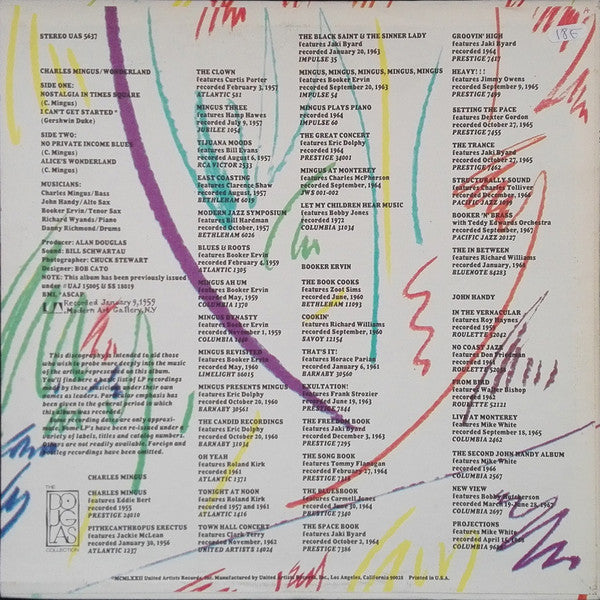 STEREO UAS 5637
CHARLES MINGUS/WONDERLAND
SIDE ONE:
NOSTALGIA IN TIMES SQUARE
(C. Mingus)
I CAN'T GET STARTED *
(Gershwin Duke)
SIDE TWO:
NO PRIVATE INCOME BLUES
(C. Mingus)
ALICE'S WONDERLAND
(C. Mingus)
MUSICIANS:
Charles Mingus/Bass
John Handy/Alto Sax
Booker Ervin/Tenor Sax
Richard Wyands/Piano
Danny Richmond/Drums
Producer: ALAN DOUGLAS
Sound: BILL SCHWARTAU
Photographer: CHUCK STEWART
Designer: BOB CATO
NOTE: This album has been previously issued
under #UAJ 15005 & SS 18019
BMI, *ASCAP
Recorded January 9, 1959
Modern Art Gallery, N.Y.
This discography is intended to aid those
who wish to probe more deeply into the music
of the artists represented on this album.
You'll find listings of LP recordings
by these musicians under their own
names as leaders. Particular emphasis has
been given to the period in which
this album was recorded.
Recording dates are only approxi-
mate. Some LP's have been re-issued under a
variety of labels, titles and catalog numbers.
Others are not readily available. Foreign and
bootleg recordings have been omitted.
THE
DOUGLAS
COLLECTION
CHARLES MINGUS
CHARLES MINGUS
features Eddie Bert
recorded 1955
PRESTIGE 24010
PITHECANTHROPUS ERECTUS
features Jackie McLean
recorded January 30, 1956
ATLANTIC 1237
THE CLOWN
features Curtis Porter
recorded February 3, 1957
ATLANTIC
MINGUS THREE
features Hamp Hawes
recorded July 9, 1957
JUBILEE 1054
TIJUANA MOODS
features Bill Evans
recorded August 6, 1957
RCA VICTOR 2533
EAST COASTING
features Clarence Shaw
recorded August, 1957
BETHLEHAM 6019
MODERN JAZZ SYMPOSIUM
features Bill Hardman
recorded October, 1957
BETHLEHAM 6026
BLUES & ROOTS
features Booker Ervin
recorded February 4, 1959
ATLANTIC 1305
MINGUS AH UM
features Booker Ervin
recorded May, 1959
COLUMBIA 1370
MINGUS DYNASTY
features Booker Ervin
recorded November, 1959
COLUMBIA
MINGUS REVISITED
features Booker Ervin
recorded May, 1960
LIMELIGHT 86015
MINGUS PRESENTS MINGUS
features Eric Dolphy
recorded October 20, 1960
BARNABY 30561
THE CANDID RECORDINGS
features Eric Dolphy
recorded October 20, 1960
BARNABY 31034
OH YEAH
features Roland Kirk
recorded 1961
ATLANTIC 1377
TONIGHT AT NOON
features Roland Kirk
recorded 1957 and 1961
ATLANTIC
TOWN HALL CONCERT
features Clark Terry
recorded November, 1962
UNITED ARTISTS 14024
THE BLACK SAINT & THE SINNER LADY
features Jaki Byard
recorded January 20, 1963
IMPULSE 35
MINGUS, MINGUS, MINGUS, MINGUS, MINGUS
features Booker Ervin
recorded September 20, 1963
IMPULSE 54
MINGUS PLAYS PIANO
recorded 1964
IMPULSE 60
THE GREAT CONCERT
features Eric Dolphy
recorded 1964
PRESTIGE 34001
MINGUS AT MONTEREY
features Charles McPherson
recorded September, 1964
JWS 001-002
LET MY CHILDREN HEAR MUSIC
features Bobby Jones
recorded 1972
COLUMBIA 31034
BOOKER ERVIN
THE BOOK COOKS
features Zoot Sims
recorded June, 1960
BETHLEHAM
COOKIN'
features Richard Williams
recorded September, 1960
SAVOY 12154
THAT'S IT!
features Horace Parlan
recorded January 6, 1961
BARNABY 30560
EXULTATION!
features Frank Strozier
recorded June 19, 1963
PRESTIGE 7844
THE FREEDOM
features Jaki Byard
recorded December 3, 1963
PRESTIGE 7295
THE SONG BOOK
features Tommy Flanagan
recorded February 27, 1964
PRESTIGE
THE BLUESBOOK
features Carmell Jones
recorded June 30, 1964
PRESTIGE
THE SPACE BOOK
features Jaki Byard
recorded October 2, 1964
PRESTIGE 7386
GROOVIN' HIGH
features Jaki Byard
recorded 1964
PRESTIGE 7417
HEAVY!!!
features Jimmy Owens
recorded September 9, 1965
PRESTIGE 7499
SETTING THE PACE
features Dexter Gordon
recorded October 27, 1965
PRESTIGE 7455
THE TRANCE
features Jaki Byard
recorded October 27, 1965
PRESTIGE 7462
STRUCTURALLY SOUND
features Charles Tolliver
recorded December,
PACIFIC JAZZ
BOOKER 'N' BRASS
with Teddy Edwards Orchestra
recorded September, 1967
PACIFIC JAZZ 20127
THE IN BETWEEN
features Richard Williams
recorded January, 1968
BLUENOTE 84283
JOHN HANDY
IN THE VERNACULAR
features Roy Haynes
recorded 1959
ROULETTE
NO COAST JAZZ
features Don Friedman
recorded
ROULETTE
FROM BIRD
features Walter Bishop
recorded 1962
ROULETTE 52121
LIVE AT MONTEREY
features Mike White
recorded September 18, 1965
COLUMBIA 2462
THE SECOND JOHN HANDY ALBUM
features Mike White
recorded 1966
COLUMBIA 2567
NEW VIEW
features Bobby Hutcherson
recorded March
COLUMBIA 2697
PROJECTIONS
features Mike White
recorded April 15, 1968
COLUMBIA
18€
℗MCMLXXII United Artists Records, Inc. Manufactured by United Artists Records, Inc., Los Angeles, California 90028 Printed in U.S.A.